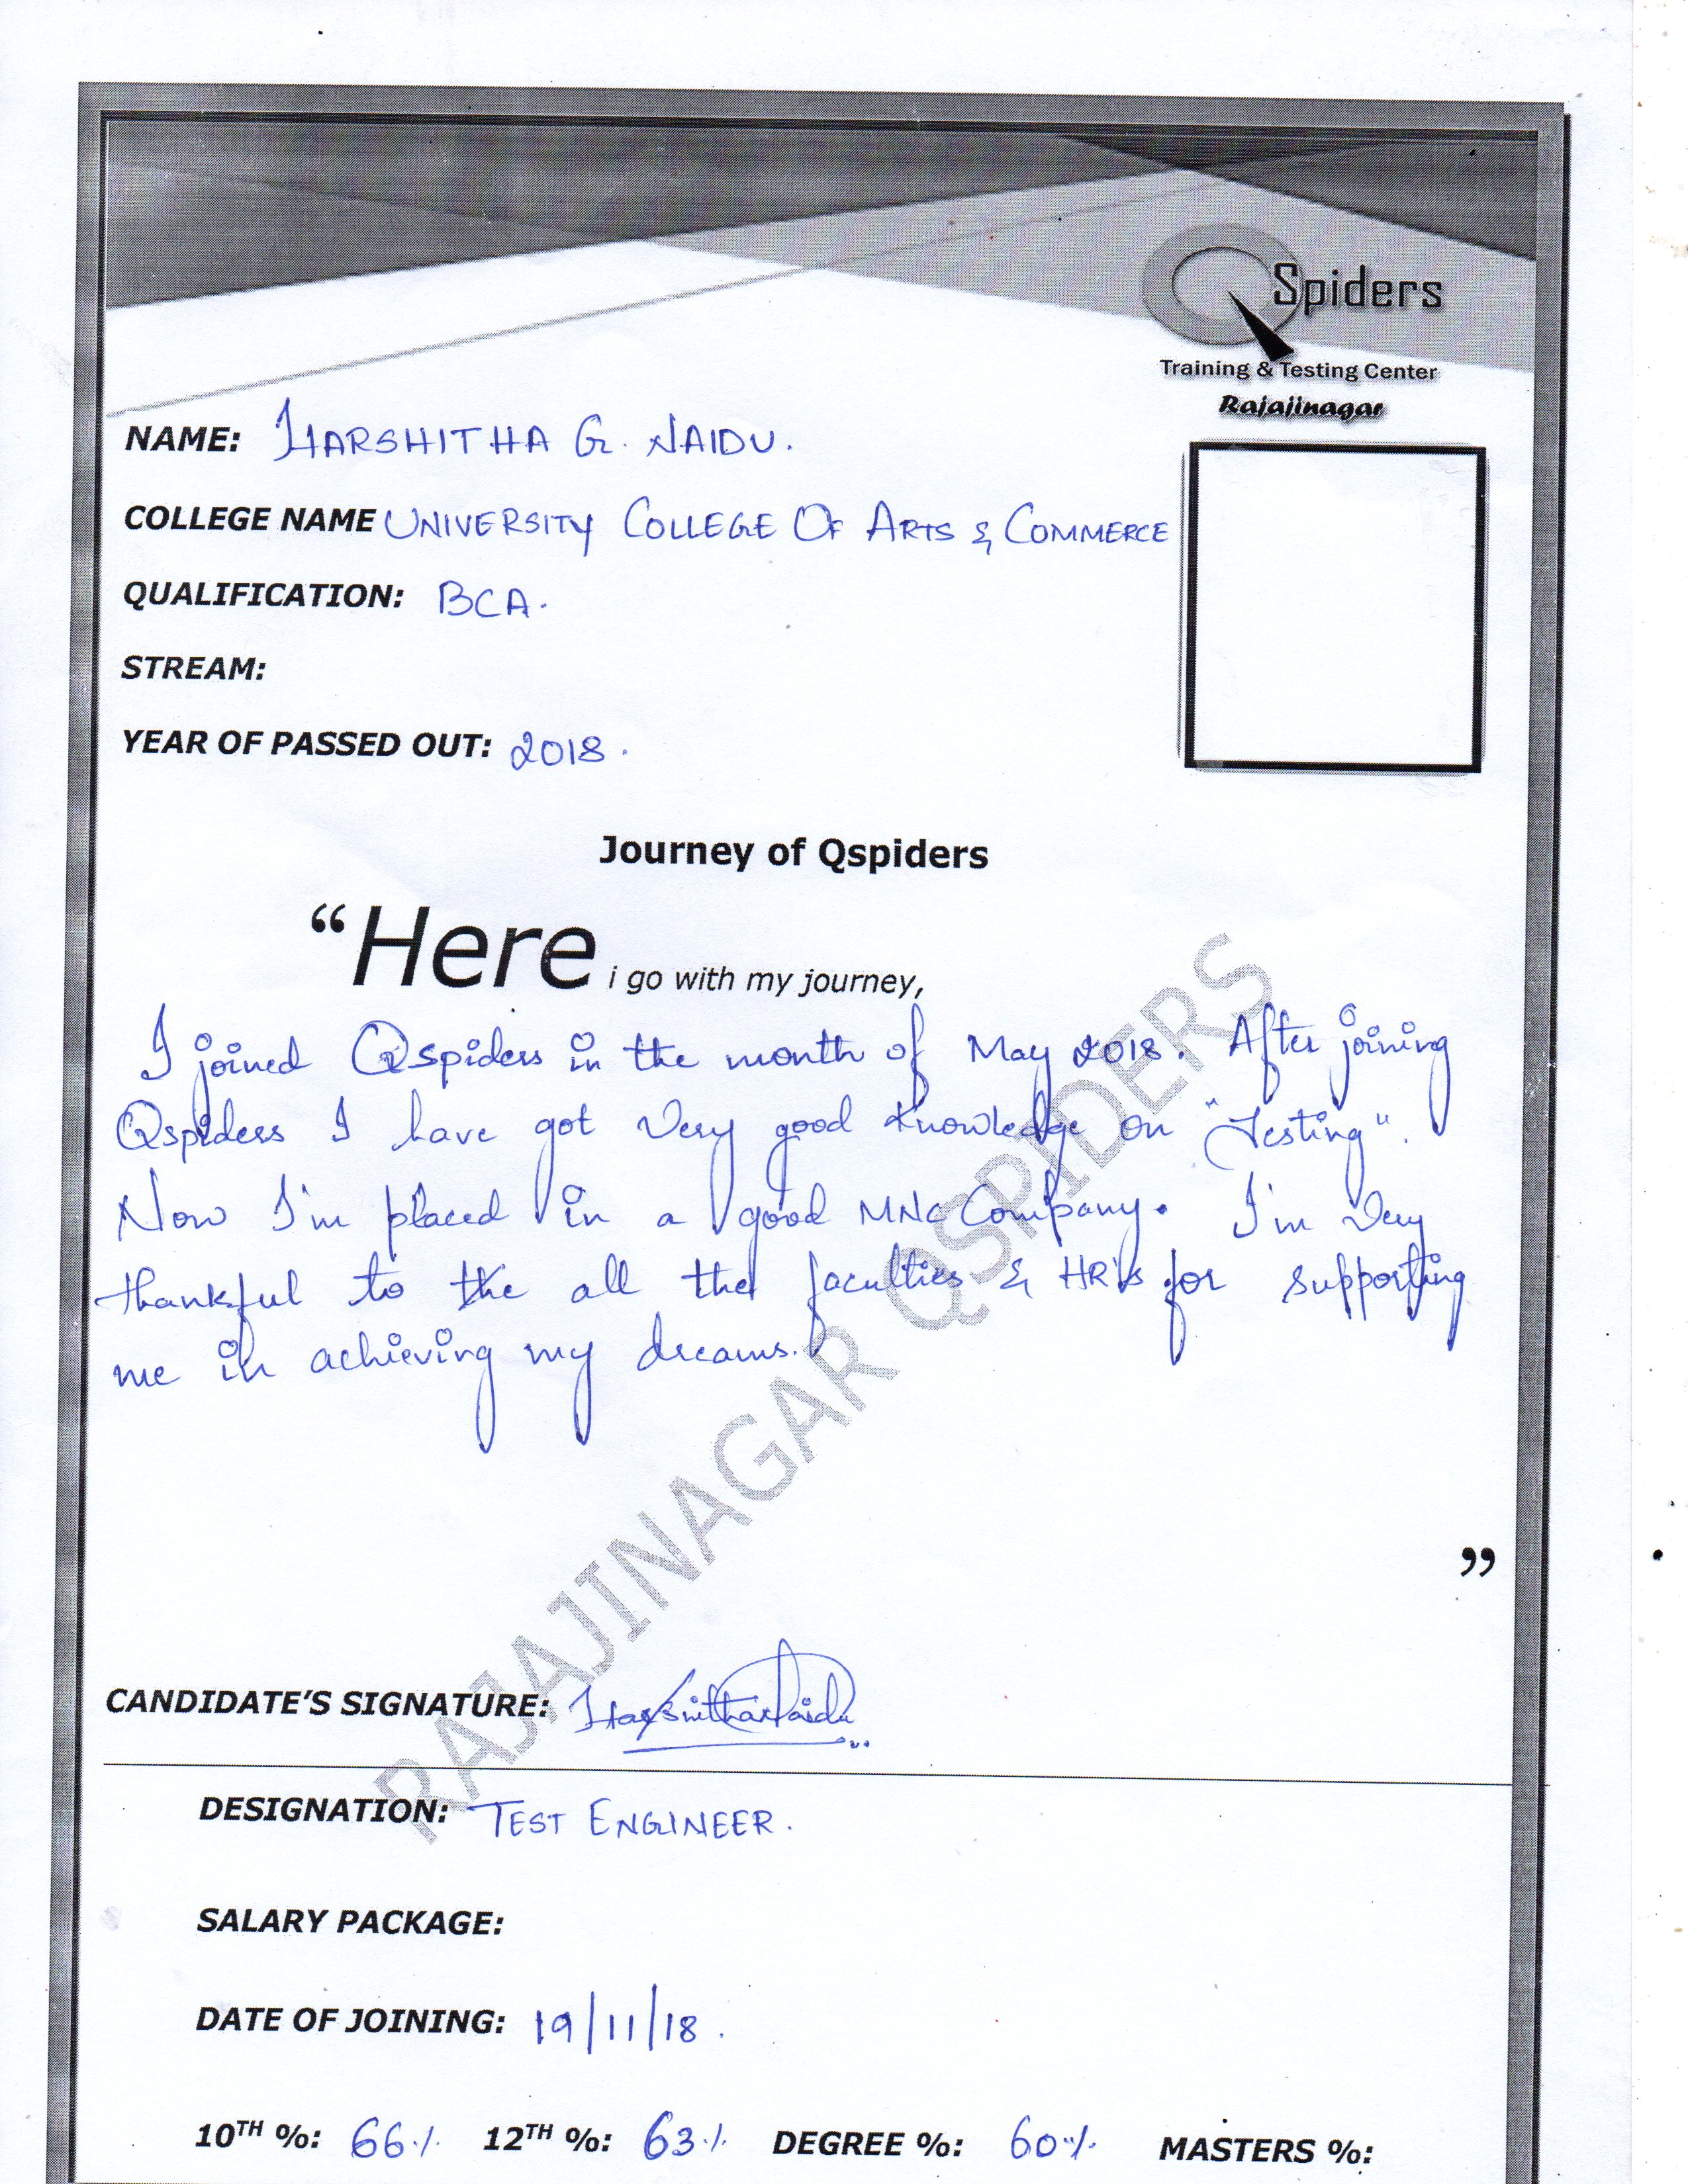 QSpiders
Training & Testing Center
Rajajinagar
NAME: HARSHITHA G. NAIDU.
COLLEGE NAME UNIVERSITY COLLEGE OF ARTS & COMMERCE
QUALIFICATION: BCA.
STREAM:
YEAR OF PASSED OUT: 2018.
Journey of Qspiders
“Here i go with my journey,
I joined Qspiders in the month of May 2018. After joining
Qspiders I have got very good knowledge on "Testing".
Now I'm placed in a good MNC Company. I'm very
thankful to the all the faculties & HR's for supporting
me in achieving my dreams.
”
RAJAJINAGAR QSPIDERS
CANDIDATE’S SIGNATURE: Harshitha Naidu
DESIGNATION: TEST ENGINEER.
SALARY PACKAGE:
DATE OF JOINING: 19/11/18.
10TH %: 66% 12TH %: 63% DEGREE %: 60% MASTERS %: